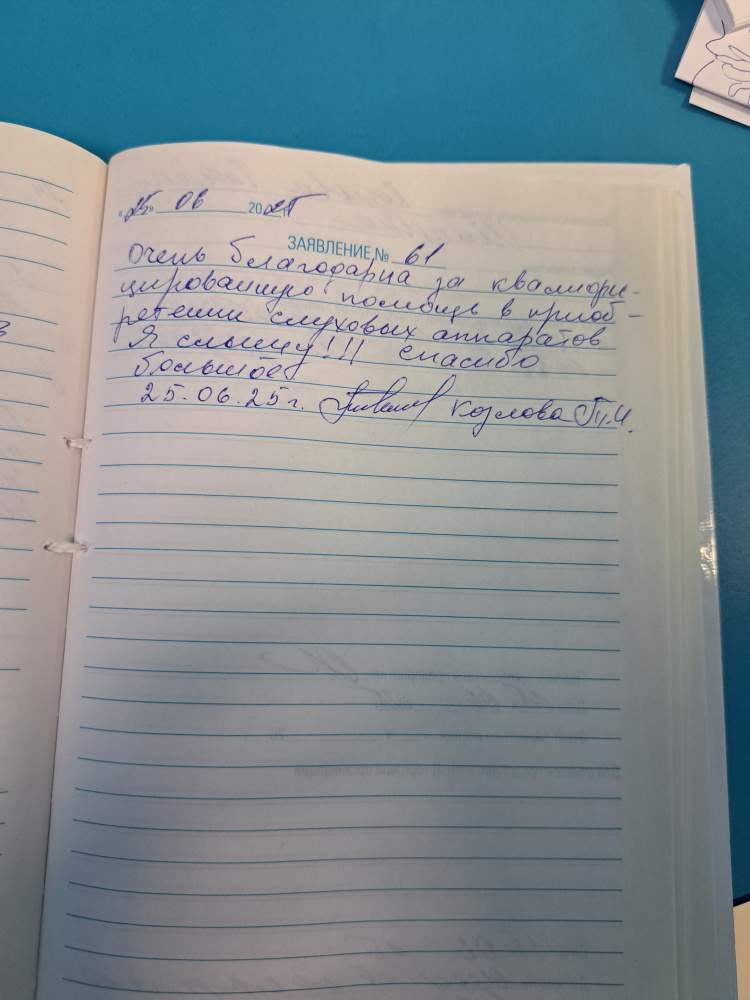 «25» 06 2025
ЗАЯВЛЕНИЕ № 61
Очень благодарна за квалифи-
цированную помощь в приоб-
ретении слуховых аппаратов
Я слышу!!! спасибо
большое
25.06.25г. Козлова Т.И.